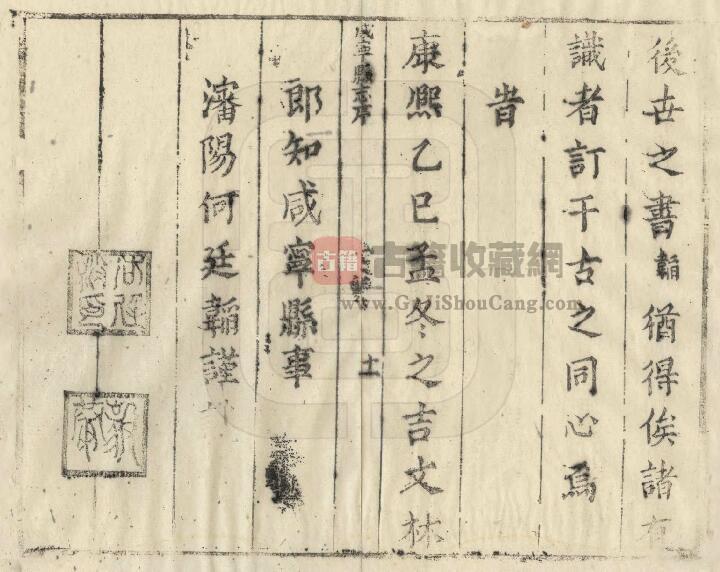 後世之書韜猶得俟諸有
識者訂千古之同心焉
旹
康熙乙巳孟冬之吉文林
咸寧縣志序
十一
郎知咸寧縣事
瀋陽何廷韜謹
古籍
古籍收藏網
www.GuJiShouCang.com